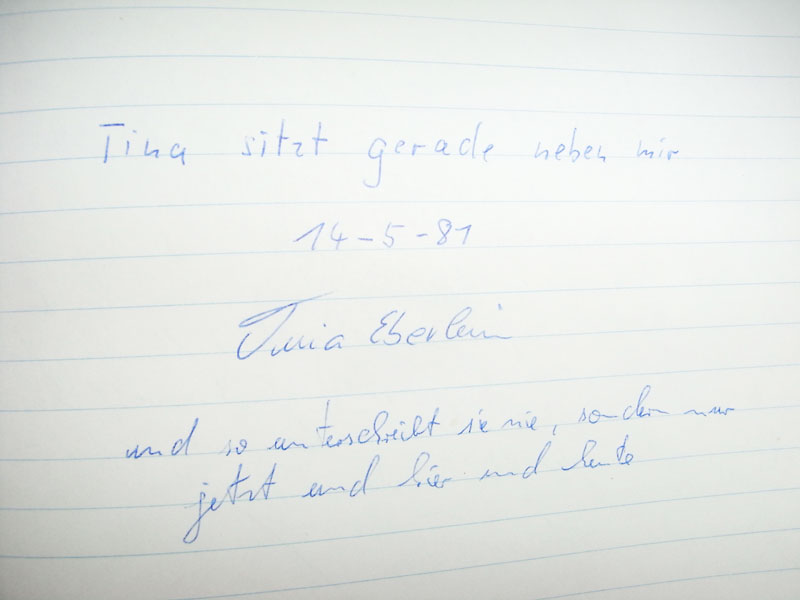 Tina sitzt gerade neben mir
14-5-81
Eberlein
und so unterschreibt sie nie, sondern nur
jetzt und hier und heute